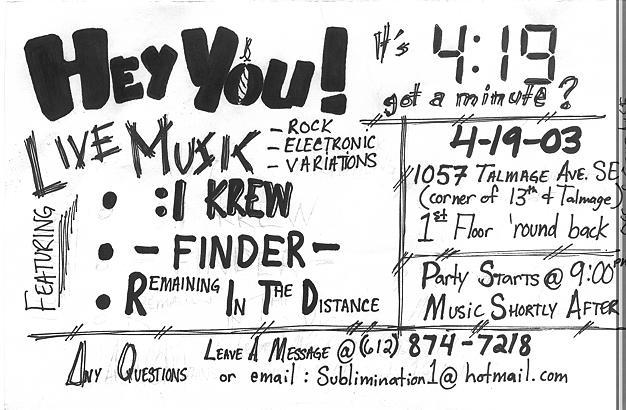 HEY YOU!
It's 4:19
got a minute?
LIVE MUSIK
- ROCK
- ELECTRONIC
- VARIATIONS
FEATURING
• :| KREW
• - FINDER -
• REMAINING IN THE DISTANCE
4-19-03
1057 TALMAGE AVE. SE
(corner of 13th & Talmage)
1st Floor 'round back
Party Starts @ 9:00pm
Music Shortly After
Any Questions
Leave A Message @ (612) 874-7218
or email: Sublimination1@hotmail.com